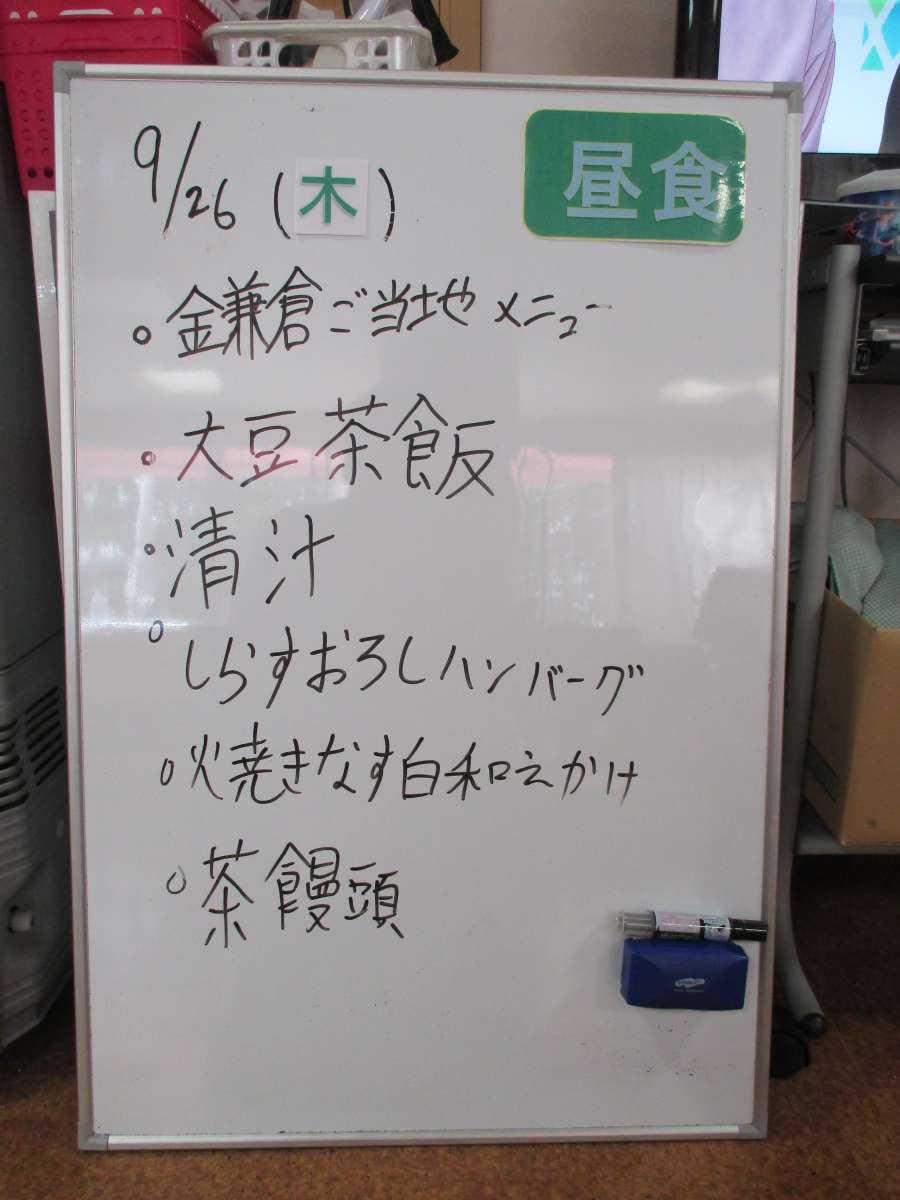 9/26 (木) 昼食
○金鎌倉ご当地メニュー
○大豆茶飯
○清汁
○しらすおろしハンバーグ
○焼きなす白和えかけ
○茶饅頭